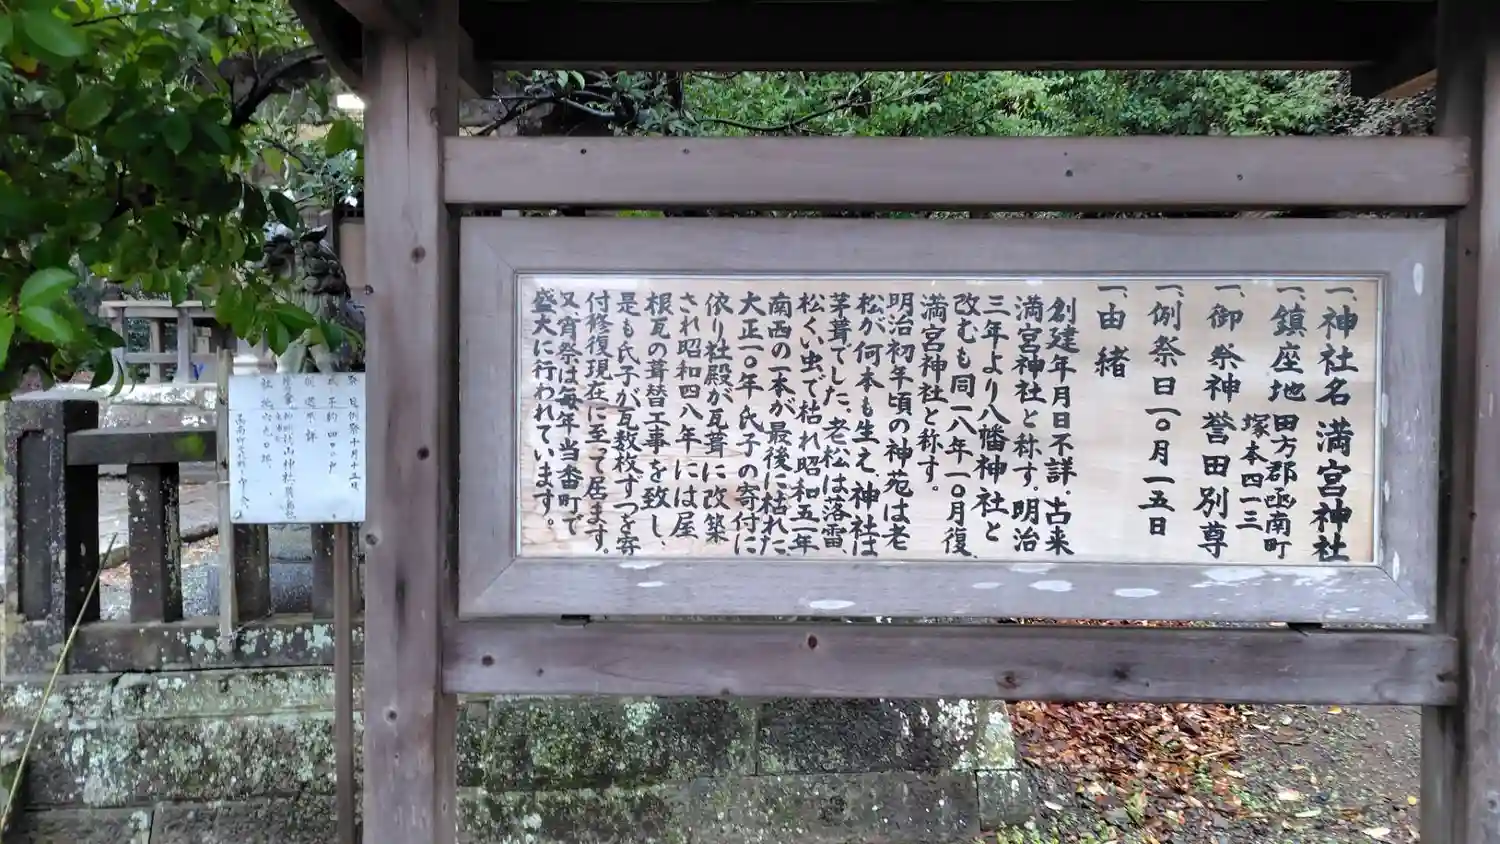 一、神社名 満宮神社
一、鎮座地 田方郡函南町
塚本四一三
一、御祭神 誉田別尊
一、例祭日 一〇月一五日
一、由緒
創建年月日不詳、古来
満宮神社と称す。明治
三年より八幡神社と
改むも同一八年一〇月復
満宮神社と称す。
明治初年頃の神苑は老
松が何本も生え、神社は
茅葺でした。老松は落雷
松くい虫で枯れ昭和五一年
南西の一本が最後に枯れた
大正一〇年氏子の寄付に
依り社殿が瓦葺に改築
され昭和四八年には屋
根瓦の葺替工事を致し、
是も氏子が瓦数枚ずつを寄
付修復現在に至って居ます。
又、宵祭は毎年当番町で
盛大に行われています。
例祭十月十五日